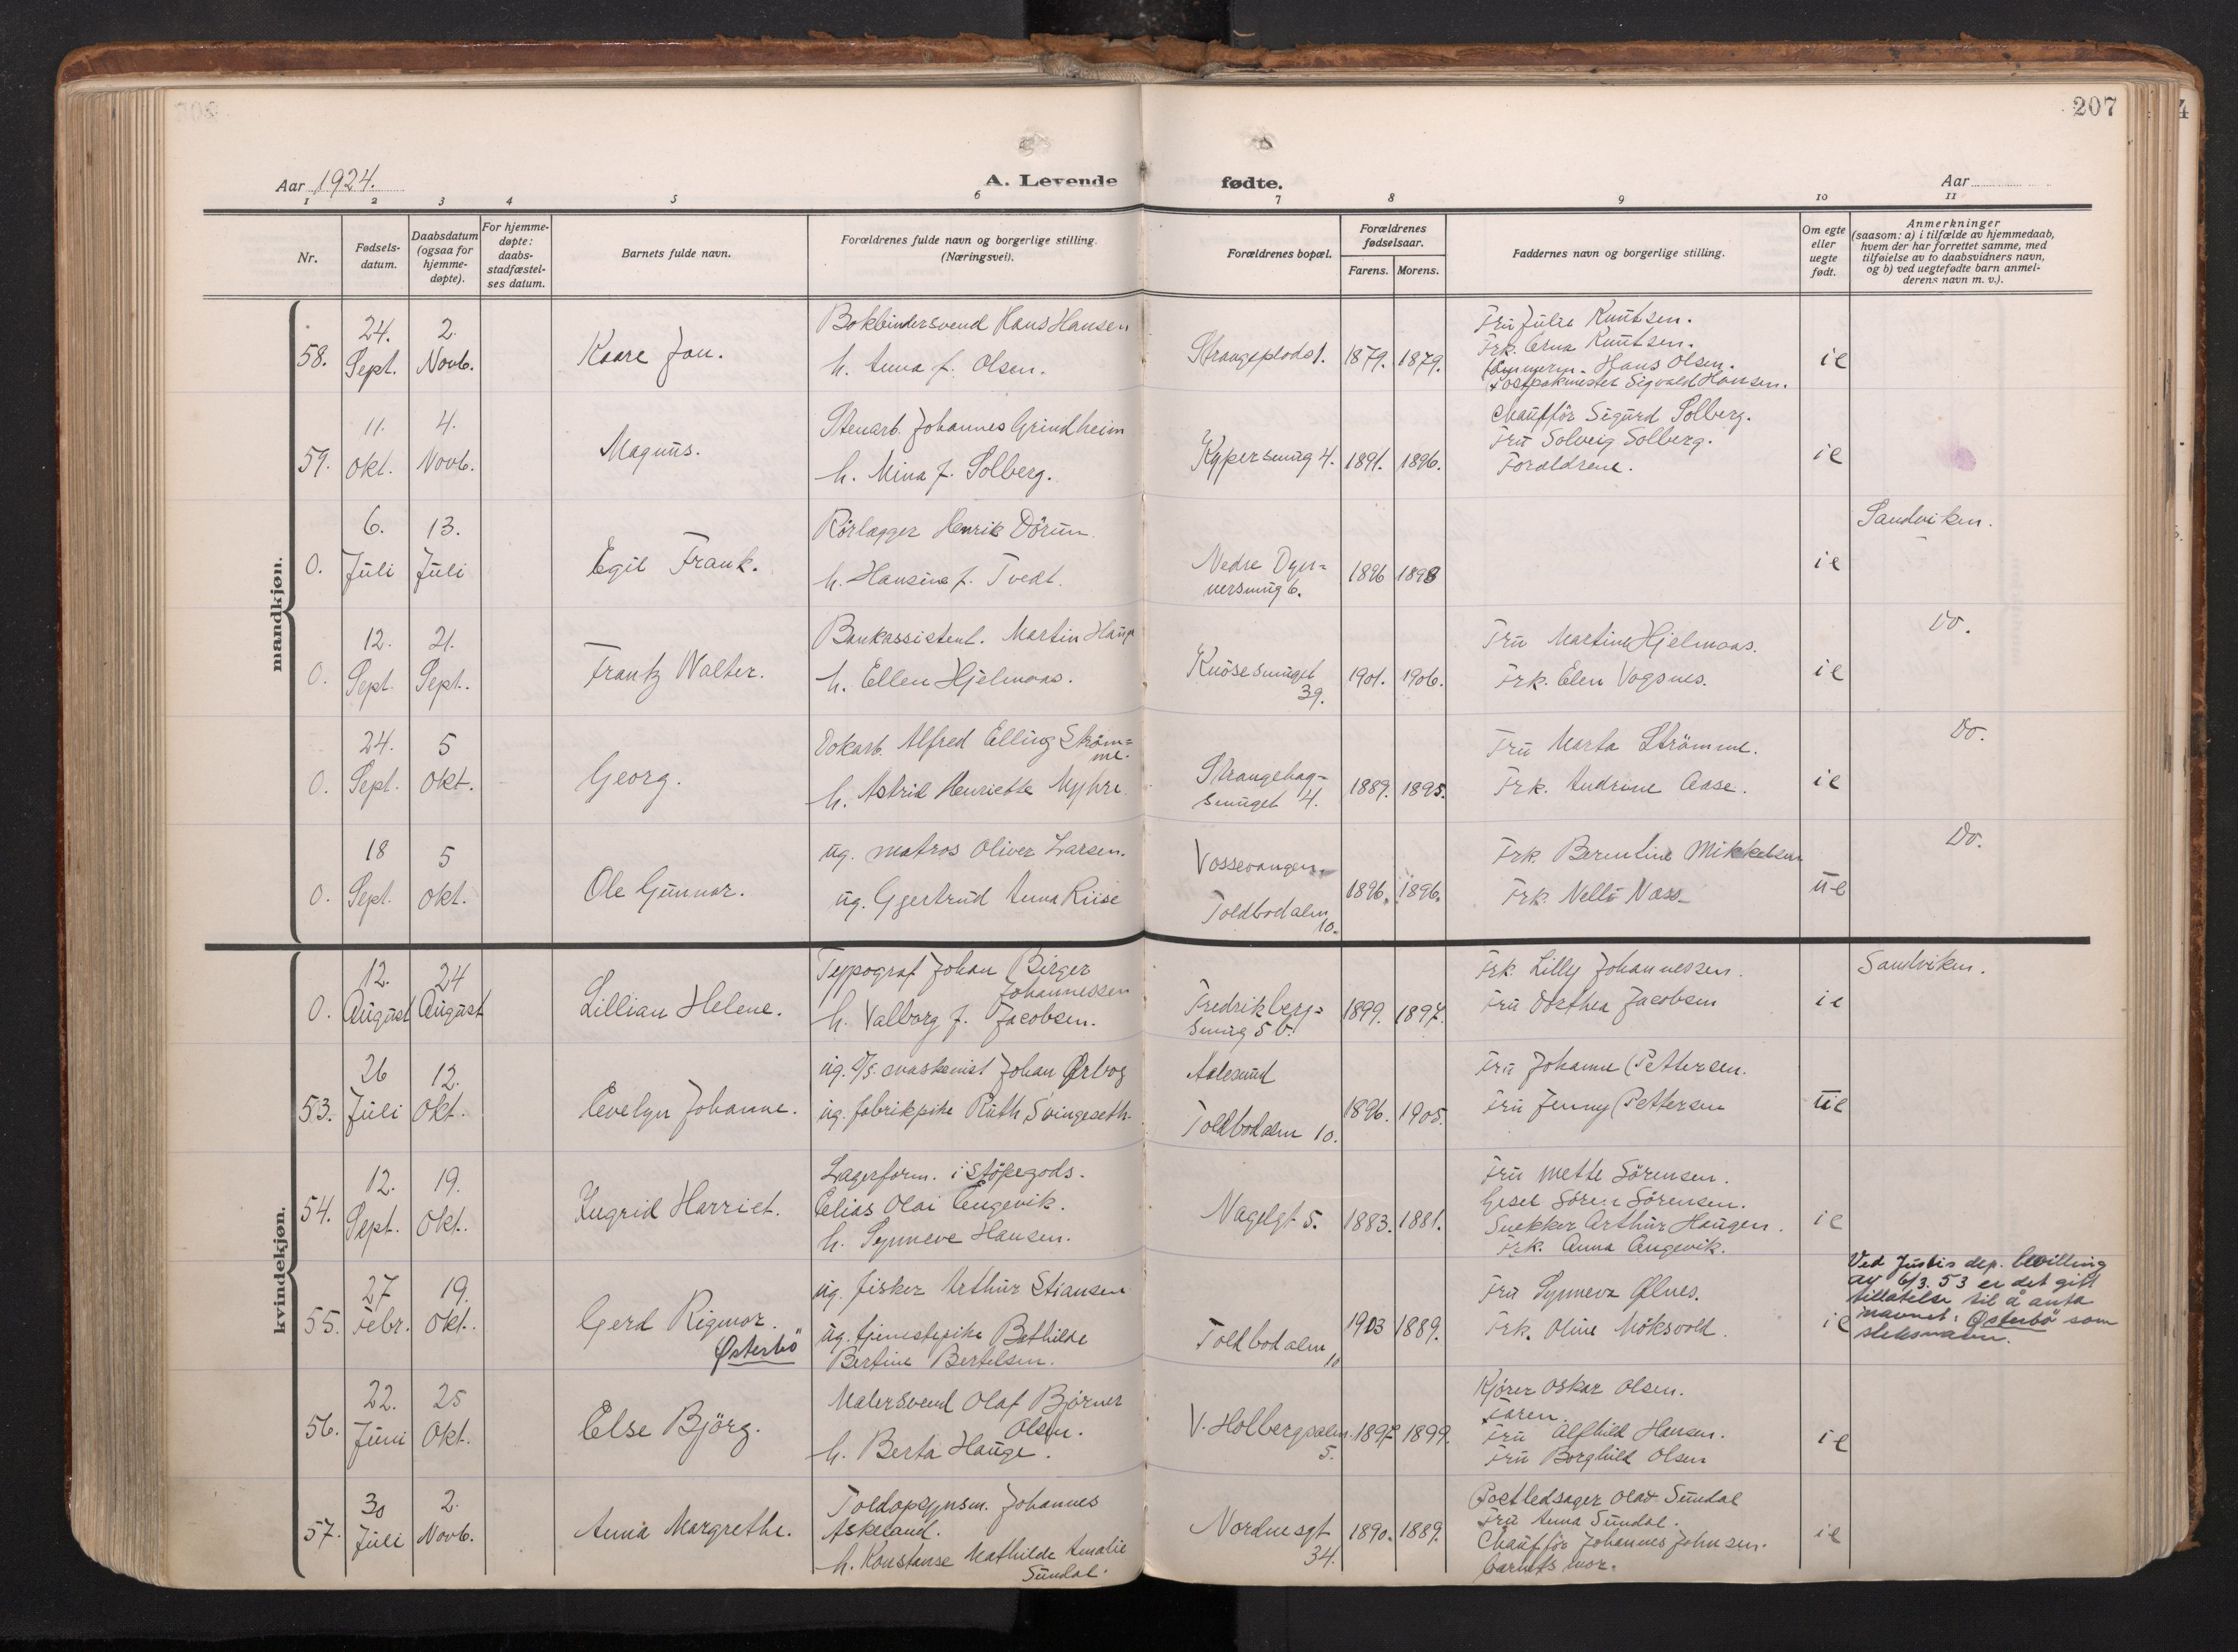 207
Aar 1924.
A. Levende fødte.
Aar
1 2 3 4 5 6 7 8 9 10 11
Nr.
Fødsels-
datum.
Daabsdatum
(ogsaa for
hjemme-
døpte).
For hjemme-
døpte:
daabs-
stadfæstel-
ses datum.
Barnets fulde navn.
Forældrenes fulde navn og borgerlige stilling.
(Næringsvei).
Forældrenes bopæl.
Forældrenes
fødselsaar.
Farens. Morens.
Faddernes navn og borgerlige stilling.
Om egte
eller
uegte
født.
Anmerkninger
(saasom: a) i tilfælde av hjemmedaab,
hvem der har forrettet samme, med
tilføielse av to daabsvidners navn,
og b) ved uegtefødte barn anmel-
derens navn m. v.).
mandkjøn.
58.
24.
Sept.
2.
Novb.
Kaare Jan.
Bokbindersvend Hans Hansen
h. Anna f. Olsen.
Strangeplads 1.
1879. 1879.
Fru Julie Knutsen.
Frk. Erna Knutsen.
Tømmerm. Hans Olsen.
Postpakmester Sigvald Hansen.
ie
59.
11.
Okt.
4.
Novb.
Magnus.
Stenarb. Johannes Grindheim
h. Mina f. Solberg.
Kypersmug 4.
1891. 1896.
Chauffør Sigurd Solberg.
Fru Solveig Solberg.
Forældrene.
ie
0.
6.
Juli
13.
Juli
Egil Frank.
Rörlægger Henrik Dörum
h. Hansine f. Tvedt.
Nedre Dyr-
versmug 6.
1896 1898
ie
Sandviken.
0.
12.
Sept.
21.
Sept.
Frantz Walter.
Bankassistent. Martin Haug
h. Ellen Hjelmaas.
Knösesmuget
39.
1901. 1906.
Fru Martine Hjelmaas.
Frk. Elen Vagsnes.
ie
Do.
0.
24.
Sept.
5
Okt.
Georg.
Dokarb. Alfred Elling Ström=
me.
h. Astrid Henriette Myhre.
Strangehag=
smuget 4.
1889. 1895.
Fru Marta Strömme.
Frk. Andrine Aase.
ie
Do.
0.
18
Sept.
5
Okt.
Ole Gunnar.
ug. matros Oliver Larsen.
ug. Gjertrud Anna Riise
Vossevangen.
Toldbodalm.
10.
1896. 1896.
Frk. Berentine Mikkelsen
Frk. Nelly Næss.
ue
Do.
kvindekjøn.
0.
12.
August
24
August
Lillian Helene.
Typograf Johan Birger
Johannessen
h. Valborg f. Jacobsen.
Fredrikberg=
smug 5 b.
1899. 1897.
Frk. Lilly Johannessen.
Fru Dorthea Jacobsen
ie
Sandviken.
53.
26
Juli
12.
Okt.
Evelyn Johanne.
ug. D/S. maskinist Johan Ørbog
ug. fabrikpike Ruth Svingeseth.
Aalesund
Toldbodalm 10.
1896. 1905.
Fru Johanne Pettersen.
Fru Jenny Pettersen
ue
54.
12.
Sept.
19.
Okt.
Ingrid Harriet.
Lagerform. i Stöpegods.
Elias Olai Engevik.
h. Synneve Hansen.
Nagelgt 5.
1883. 1881.
Fru Mette Sörensen.
Gesel Sören Sörensen.
Snekker Arthur Haugen.
Frk. Anna Engevik.
ie
55.
27
Febr.
19.
Okt.
Gerd Rigmor.
Østerbö
ug. fisker Arthur Stiansen
ug. tjenestepike Bathilde
Bertine Bertelsen.
Toldbodalm
10
1903 1889.
Fru Synneva Ølnes.
Frk. Oline Möksvold.
ie
Ved Justis dep. bevilling
av 6/3. 53 er det gitt
tillatelse til å anta
navnet: Østerbö som
slektsnavn.
56.
22.
Juni
25
Okt.
Else Björg.
Malersvend Olaf Björner
Olsen.
h. Berta Hauge.
V. Holbergsalm.
5.
1897 1899.
Kjörer Oskar Olsen.
Faren.
Fru Alfhild Hansen.
Fru Borghild Olsen
ie
57.
30
Juli
2.
Novb.
Anna Margrethe.
Toldopsynsm. Johannes
Askeland.
h. Konstanse Mathilde Amalie
Sundal.
Nordnesgt
34.
1890. 1889.
Postledsager Olav Sundal
Fru Anna Sundal.
Chauffør Johannes Johnsen.
Barnets mor.
ie